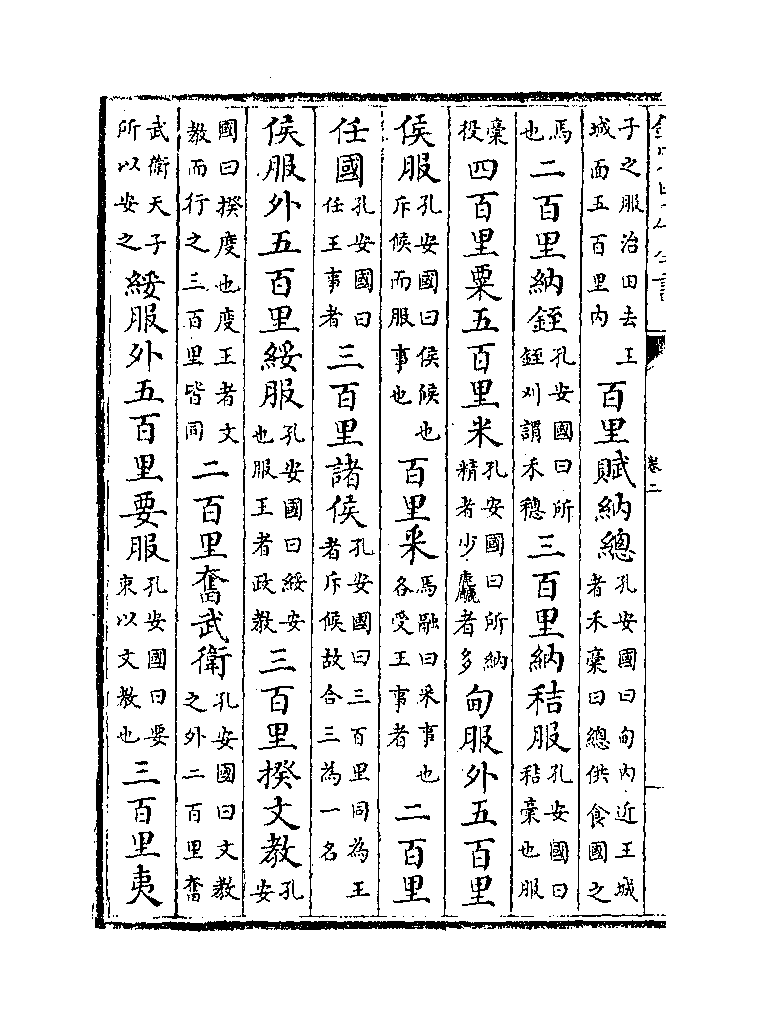 子之服治田去王城面五百里內百里賦納總孔安國曰甸內近王城者禾稾曰總供食國之
馬也二百里納銍孔安國曰所銍刈謂禾穗三百里納秸服孔安國曰秸稾也服
稾役四百里粟五百里米孔安國曰所納精者少麤者多甸服外五百里
侯服孔安國曰侯候也斥候而服事也百里釆馬融曰釆事也各受王事者二百里
任國孔安國曰任王事者三百里諸侯孔安國曰三百里同為王者斥候故合三為一名
侯服外五百里綏服孔安國曰綏安也服王者政教三百里揆文教孔安
國曰揆度也度王者文教而行之三百里皆同二百里奮武衛孔安國曰文教之外二百里奮
武衛天子所以安之綏服外五百里要服孔安國曰要束以文教也三百里夷
卷二